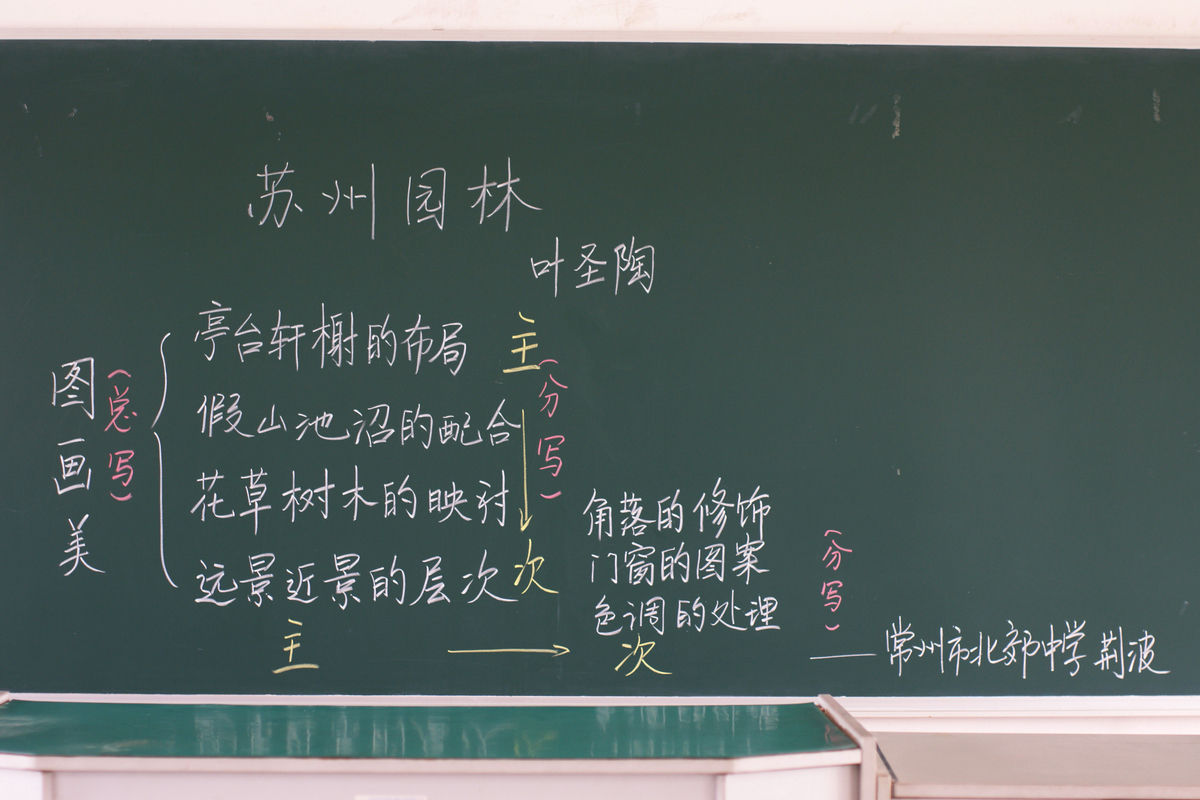 苏州园林
叶圣陶
图画美
(总写)
亭台轩榭的布局
假山池沼的配合
花草树木的映衬
远景近景的层次
主
(分写)
次
角落的修饰
门窗的图案
色调的处理
(分写)
主
次
——常州市北郊中学 荆波